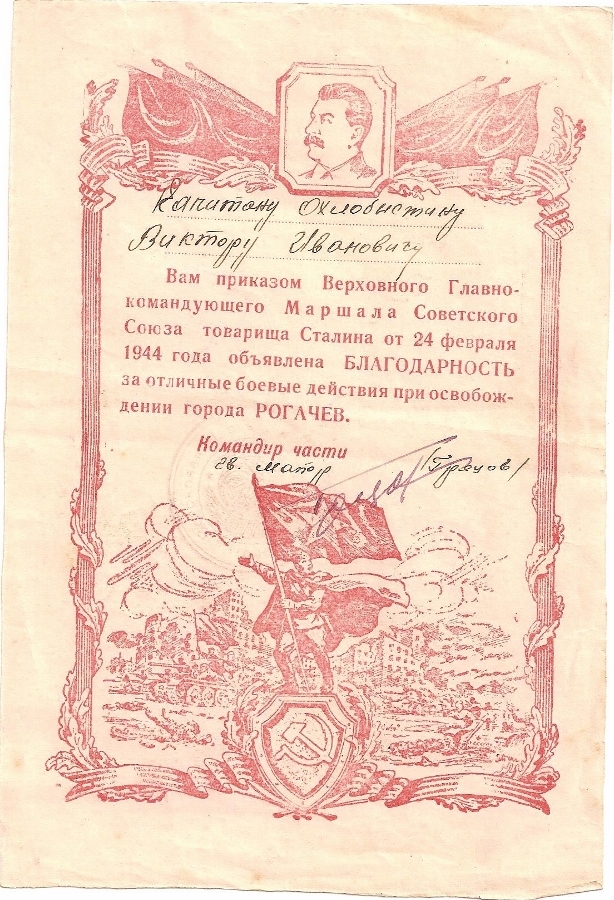 Капитану Охлобыстину
Виктору Ивановичу
Вам приказом Верховного Главно-
командующего Маршала Советского
Союза товарища Сталина от 24 февраля
1944 года объявлена БЛАГОДАРНОСТЬ
за отличные боевые действия при освобож-
дении города РОГАЧЕВ.
Командир части
гв. Майор (Грецов)